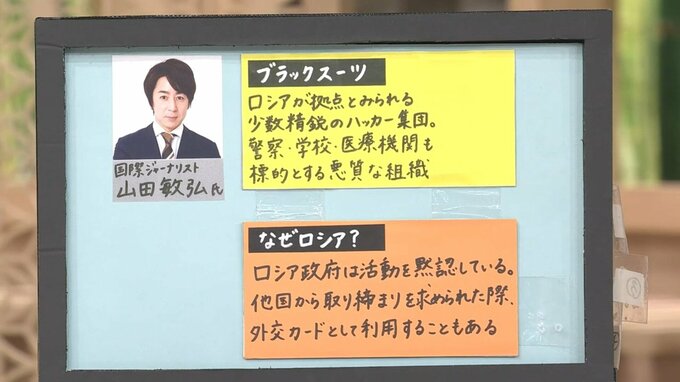 国際ジャーナリスト
山田敏弘氏
ブラックスーツ
ロシアが拠点とみられる
少数精鋭のハッカー集団。
警察・学校・医療機関も
標的とする悪質な組織
なぜロシア?
ロシア政府は活動を黙認している。
他国から取り締まりを求められた際、
外交カードとして利用することもある